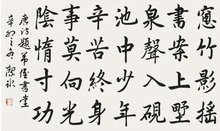 窗竹影摇
書案上野
泉聲入硯
池中少年
辛苦終身
事莫向光
陰惰寸功
唐詩題弟侄書堂
辛卯